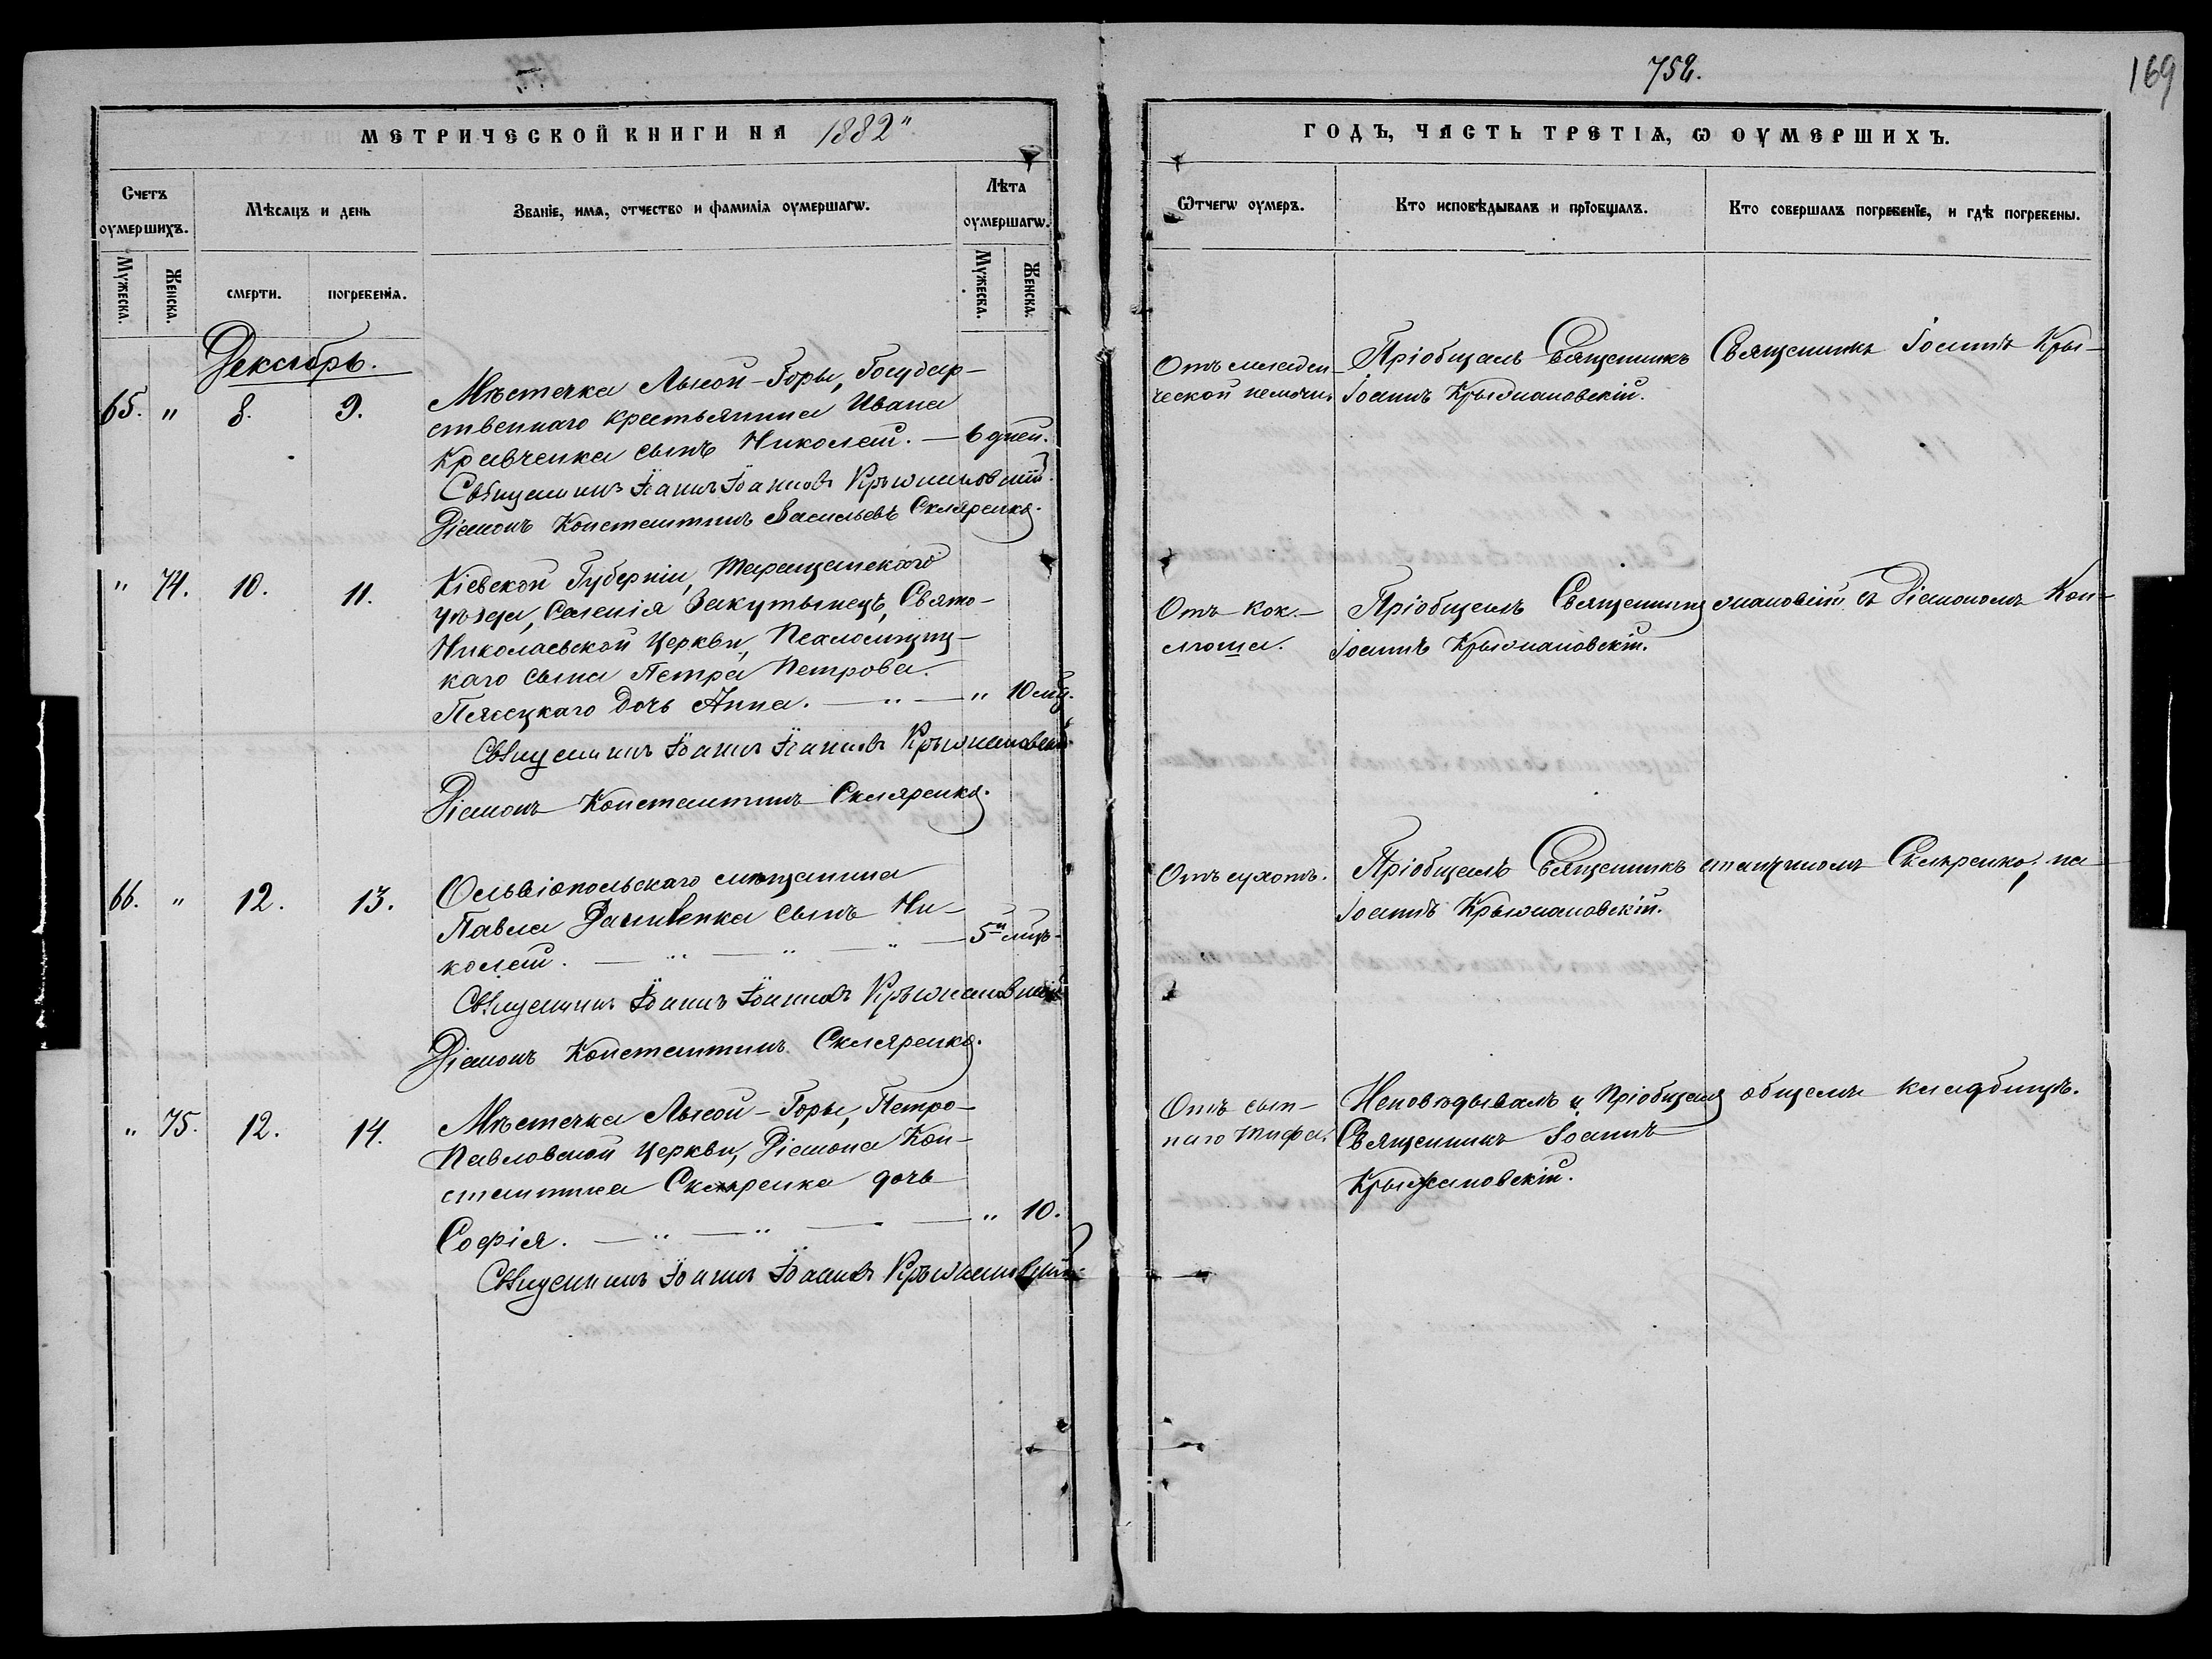 752.
169
МЕТРИЧЕСКОЙ КНИГИ НА 1882"
Счетъ оумершихъ.
Мѣсяцъ и день
Званіе, имя, отчество и фамилія оумершагѡ.
Лѣта оумершагѡ.
Мужеска.
Женска.
смерти.
погребенія.
Мужеска.
Женска.
Декабрь.
65. " 8. 9.
Мѣстечка Лысой-Горы, Государ-
ственнаго крестьянина Ивана
Кравченка сынъ Николай. — 6 дней.
Священникъ Іоаннъ Іоанновъ Крыжановскій.
Діаконъ Константинъ Васильевъ Скляренко.
" 74. 10. 11.
Кіевской Губерніи, Таращанскаго
уѣзда, Селенія Закутынецъ, Свято-
Николаевской Церкви, Псаломщиц-
каго сына Петра Петрова
Пясецкаго дочь Анна. — " — " 10 мц.
Священникъ Іоаннъ Іоанновъ Крыжановскій.
Діаконъ Константинъ Скляренко.
66. " 12. 13.
Ольвіопольскаго мѣщанина
Павла Даниленка сынъ Ни-
колай. — " — " — 5ти мцъ.
Священникъ Іоаннъ Іоанновъ Крыжановскій
Діаконъ Константинъ Скляренко.
" 75. 12. 14.
Мѣстечка Лысой-Горы, Петро-
Павловской Церкви, Діакона Кон-
стантина Скляренка дочь
Софія. — " — " — — " 10.
Священникъ Іоаннъ Іоанновъ Крыжановскій
ГОДЪ, ЧАСТЬ ТРЕТІЯ, Ѡ ОУМЕРШИХЪ.
Ѿтчегѡ оумеръ.
Кто исповѣдывалъ и пріобщалъ.
Кто совершалъ погребеніе, и гдѣ погребены.
Отъ младен-
ческой немочи.
Пріобщалъ Священникъ
Іоаннъ Крыжановскій.
Священникъ Іоаннъ Кры-
Отъ кок-
люша.
Пріобщалъ Священникъ
Іоаннъ Крыжановскій.
жановскій съ Діакономъ Кон-
Отъ сухотъ.
Пріобщалъ Священникъ
Іоаннъ Крыжановскій.
стантиномъ Скляренко, на
Отъ сып-
наго тифа.
Исповѣдывалъ и Пріобщалъ
Священникъ Іоаннъ
Крыжановскій.
общемъ кладбищѣ.